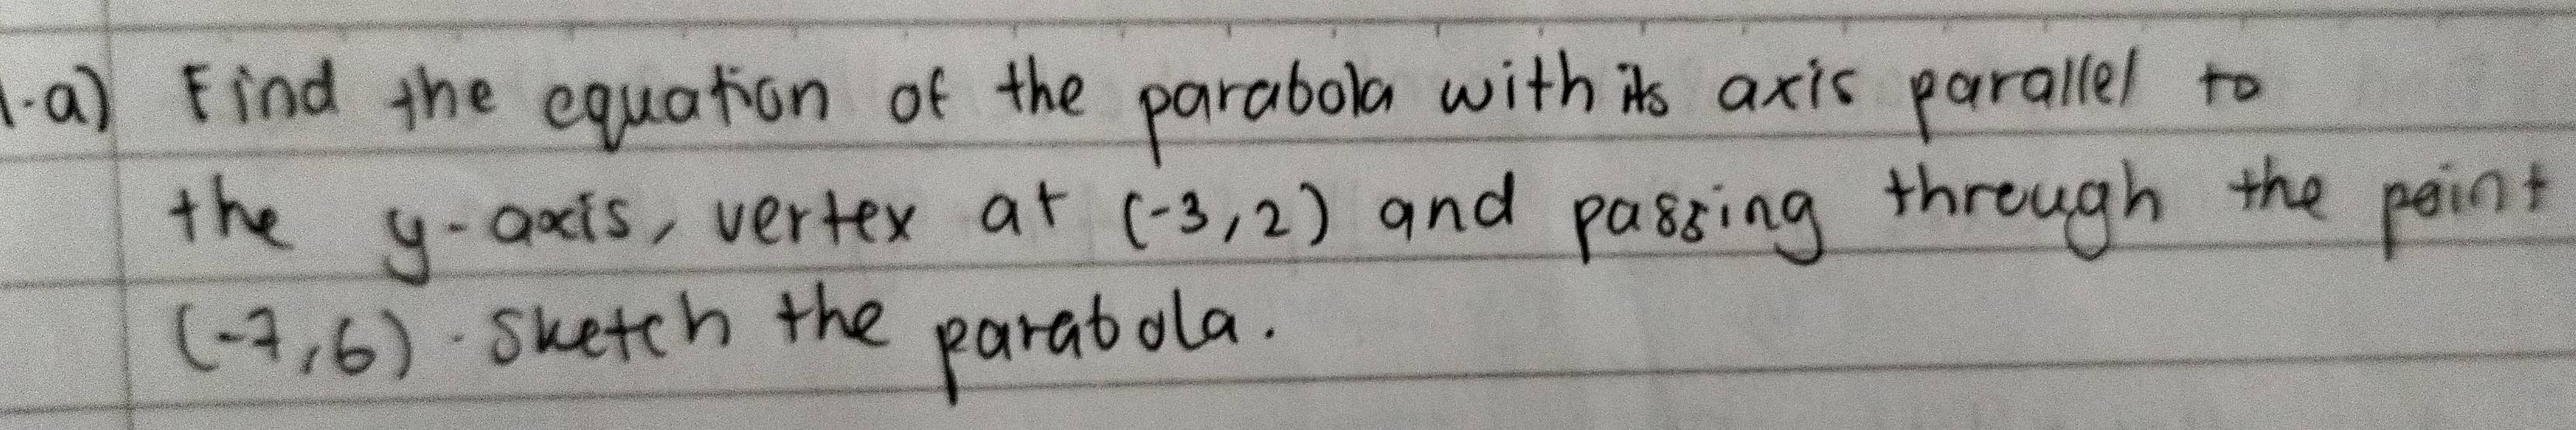 1.a) Find the equation of the parabola with its axis parallel to
the y-axis, vertex at (-3,2) and passing through the point
(-7,6). Sketch the parabola.